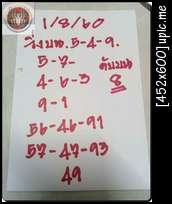 1/8/60
วิ่งบน. 5-4-9.
5-7-
4-6-3
ดับบน
8
9-1
56-46-91
57-47-93
49
[452x600] upic.me